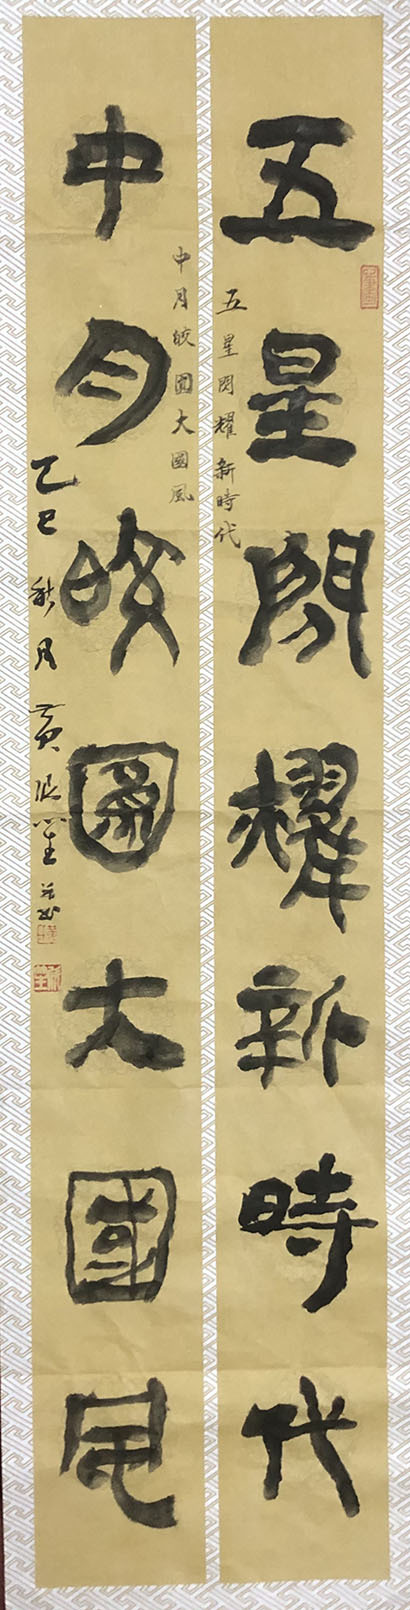 五星閃耀新時代
五星閃耀新時代
中月皎圓大國風
中月皎圓大國風
乙巳秋月黃